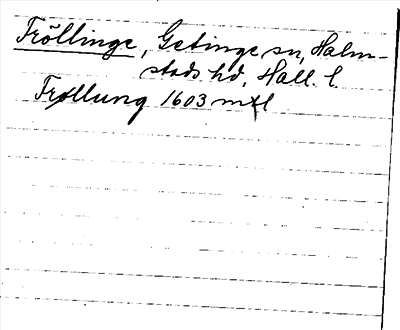 Fröllinge, Getinge sn, Halm-
stads hd, Hall. l.
Frøllung 1603 mtl